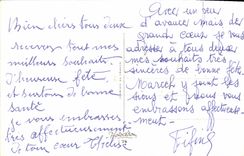 Bien chers tous deux
recevez tous mes
meilleurs souhaits
d'heureuse fête
et surtout de bonne
santé
je vous embrasse
très affectueusement
de tout cœur
Avec un peu
d'avance mais de
grand cœur je vous
adresse à tous deux
mes souhaits très
sincères de bonne fête.
se joint
à nous et nous vous
embrassons affectueuse-
ment.